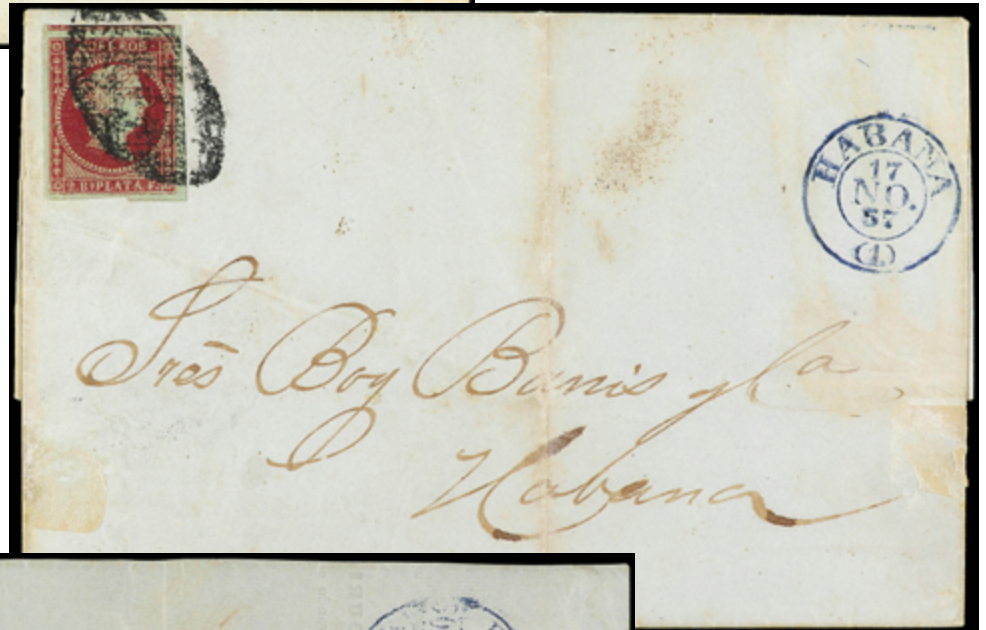 CORREOS
2 Rˢ PLATA F.
HABANA
17
NO.
57
(1)
Sres Boy Banis y Ca
Habana